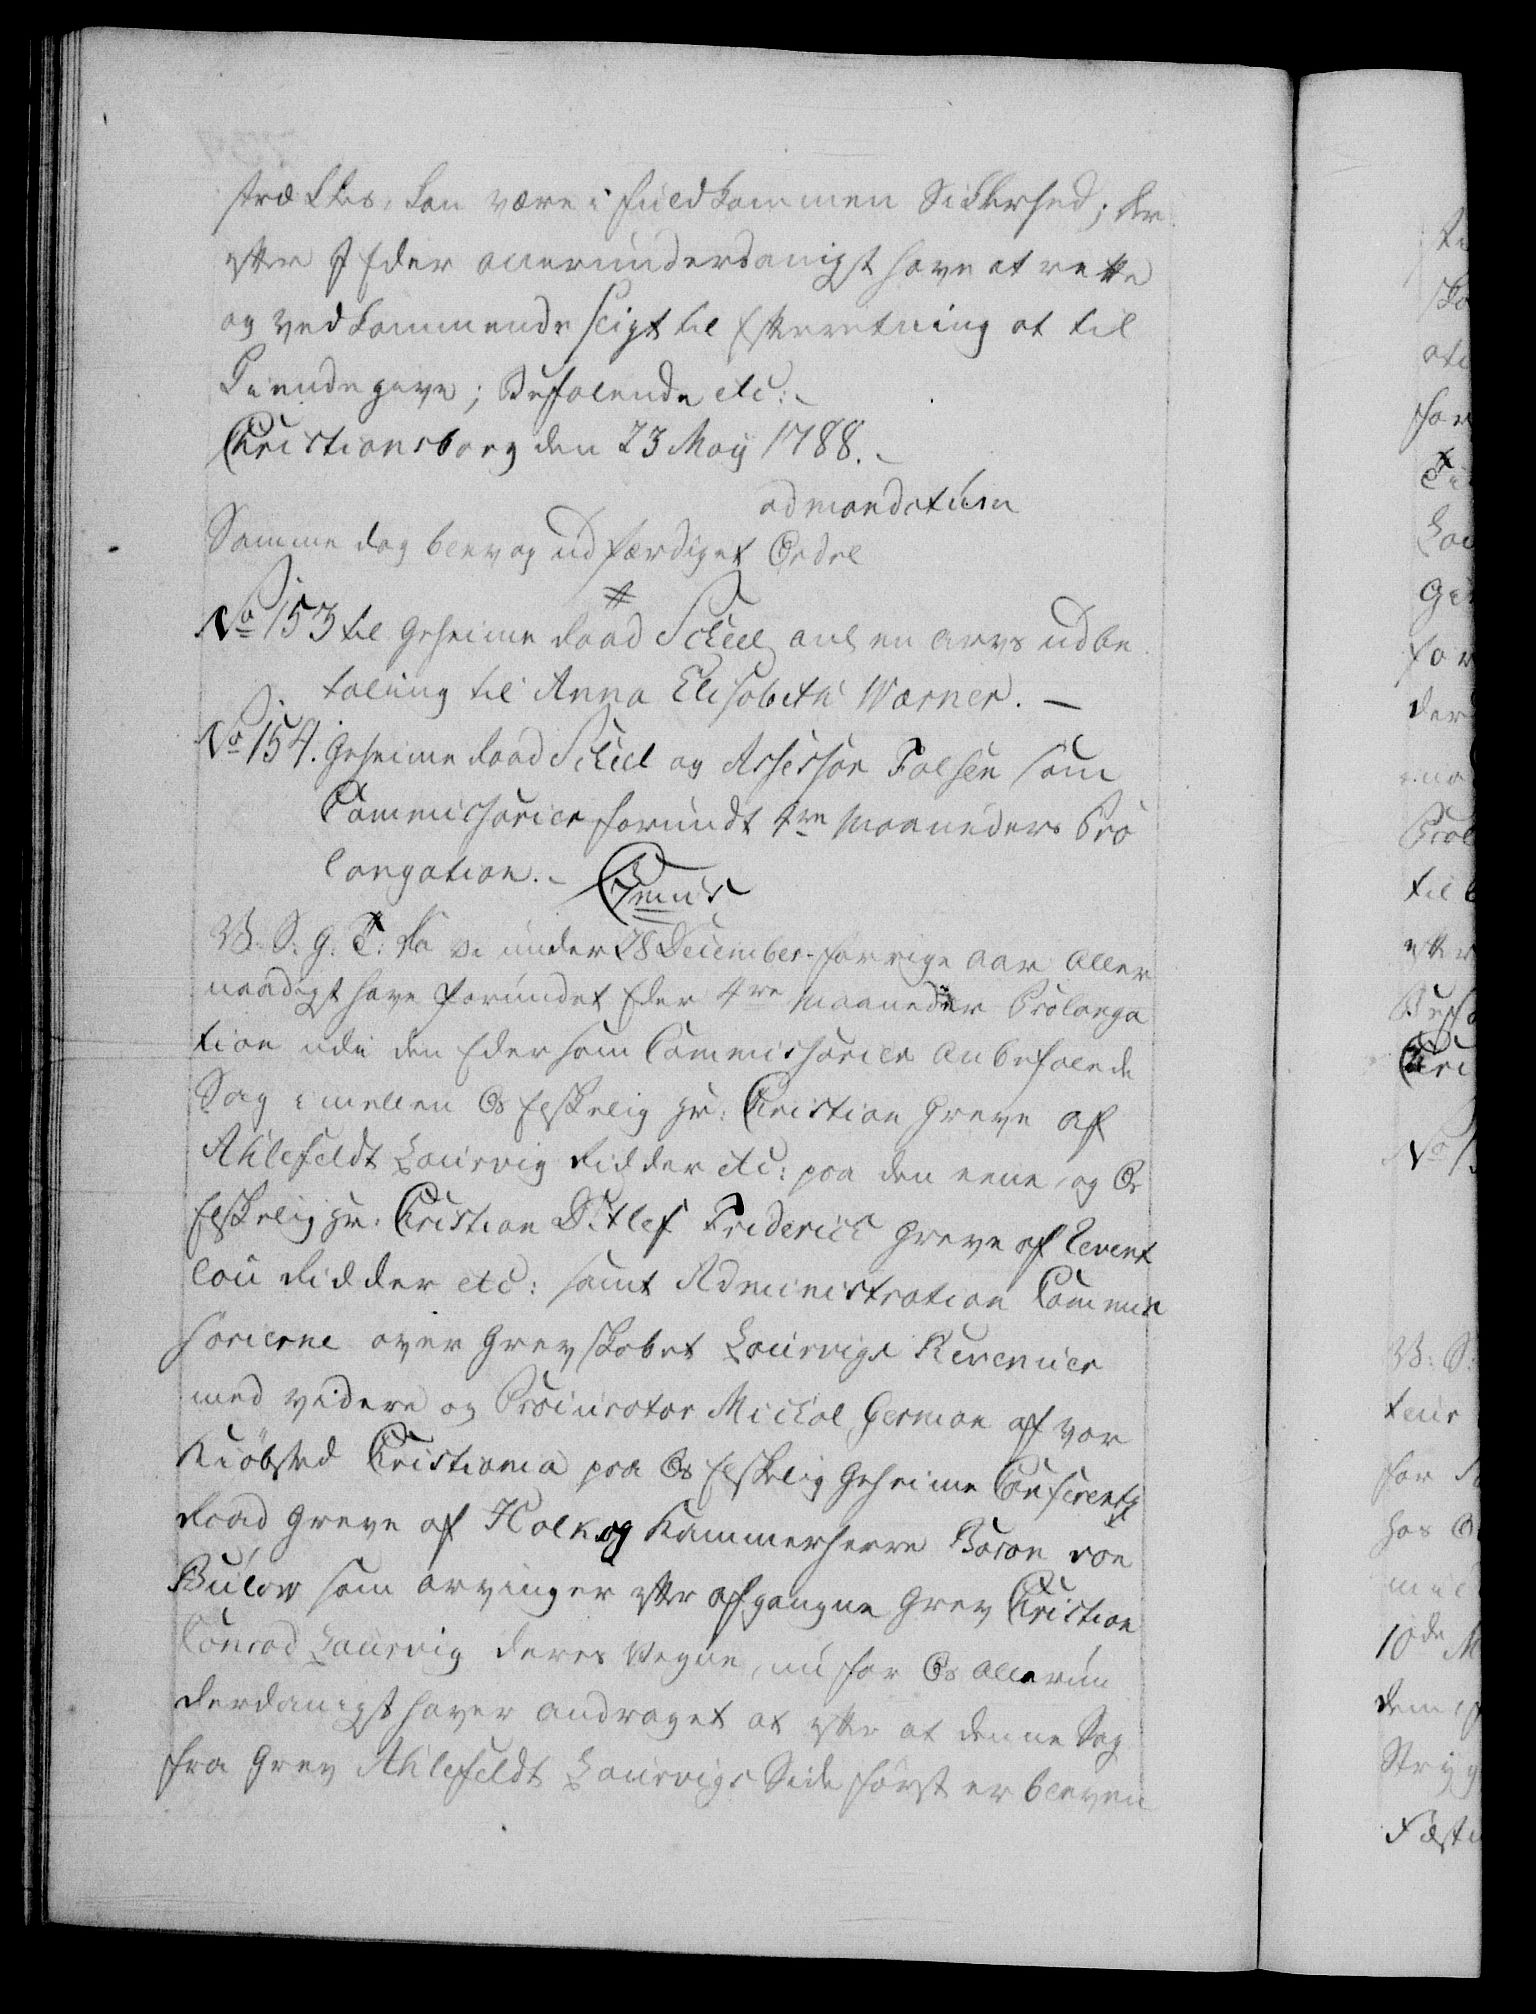 strækkes, kan være i fuldkommen Sikkerhed; der
efter I Eder allerunderdanigst have at rette
og vedkommende sligt til Efterretning at til
Kiende give; Befalende etc:
Christiansborg den 23 Maij 1788.
ad mandatum
Samme dag blev og udfærdiget Ordre
No 153 til Geheime Raad Scheel anl en arvs udbe
taling til Anna Elisabeth Wærner. —
No 154. Geheime Raad Scheel og Assessor Falsen som
Commissarier forundt 4re Maaneders Pro
longation.
C7mus
V. S. G. T. Da vi under 28 December forrige Aar Aller
naadigst have forundet Eder 4re Maaneder Prolonga
tion udi den Eder som Commissarier anbefalede
Sag imellem Os Elskelig Hr: Christian Greve af
Ahlefeldt Laurvig Ridder etc: paa den eene, og Os
Elskelig Hr: Christian Ditlef Friderich Greve af Revent
lou Ridder etc: samt Administration Commis
sarierne over Grevskabet Laurvigs Revenuer
med videre og Procurator Michal German af vor
Kiöbsted Christiania paa Os Elskelig Geheime Conferentz
Raad Greve af Holk og Kammerherre Baron von
Bülow som arvinger efter afgangne Grev Christian
Conrad Laurvig deres Vegne, nu for Os allerun
derdanigst haver andraget at efter at denne Sag
fra Grev Ahlefeldt Laurvigs Side først er bleven